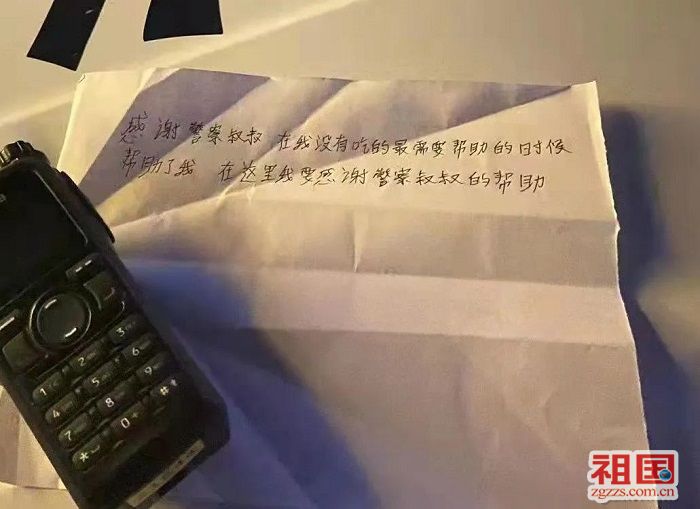 感谢警察叔叔 在我没有吃的最需要帮助的时候
帮助了我 在这里我要感谢警察叔叔的帮助
1 2 3
4 5 6
7 8 9
* 0 #
祖国
zgzzs.com.cn